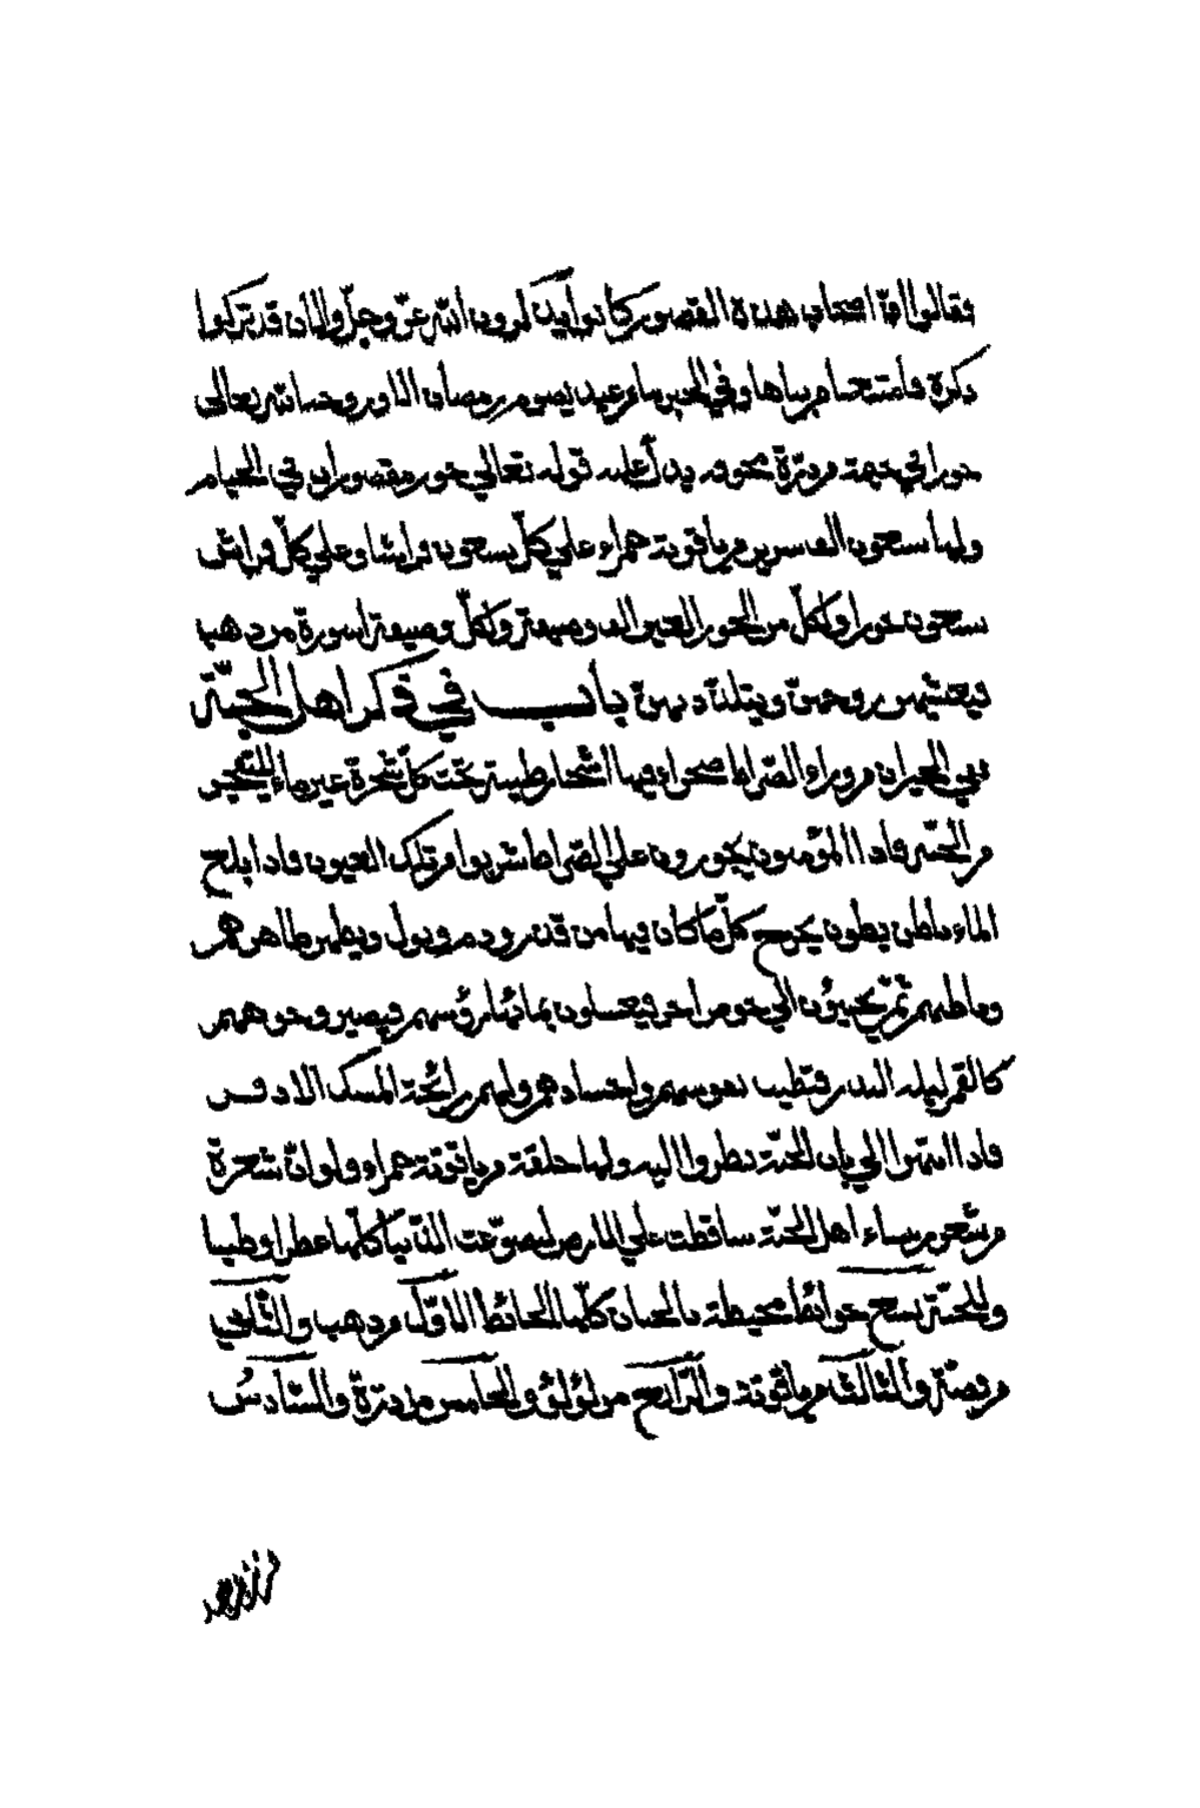 فقالوا انّ اصحاب هذه القصور كانوا يذكرون الله عزّ وجلّ والان قد تركوا
ذكره وفي الخبر ما من عبد يصوم رمضان الا وزوجه الله تعالى
حورا في خيمة من درّة مجوفه يدل عليه قوله تعالى حور مقصورات في الخيام
ولها سبعون الف سرير من ياقوتة حمراء على كلّ سبعون فراشا وعلى كلّ فراش
سبعون حورا ولكلّ من الحور العين الف وصيفة ولكلّ وصيفة اسورة من ذهب
فيعشيهن زوجهنّ ويتلذذ بهنّ باب في ذكر اهل الجنّة
في الخبر ان من وراء الصّراط صحراء فيها اشجار طيبة تحت كلّ شجرة عين ماء
من الجنّة فاذا المؤمنون يجوزون على الصّراط شربوا من تلك العيون فاذا بلغ
الماء بطون يخرج كلّ ما كان فيها من قذر ودم وبول ويطهر ظاهرهم
وباطنهم ثمّ يجيئون الى حوض اخر فيغسلون رؤسهم فيصير وجوههم
كالقمر ليلة البدر فتطيب نفوسهم واجسادهم ولهم رائحة المسك الاذفر
فاذا انتهوا الى باب الجنّة نظروا اليه ولها حلقة من ياقوتة حمراء ولو انّ شعرة
من شعر نساء اهل الجنّة ساقطت على الارض لضوّعت الدّنيا كلّها عطرا وطيبا
وللجنّة سبع حوائط محيطة بالجنان كلّها الحائط الاوّل من ذهب والثّاني
من فضّة والثالث من ياقوتة والرّابع من لؤلؤ والخامس من درّة والسّادس